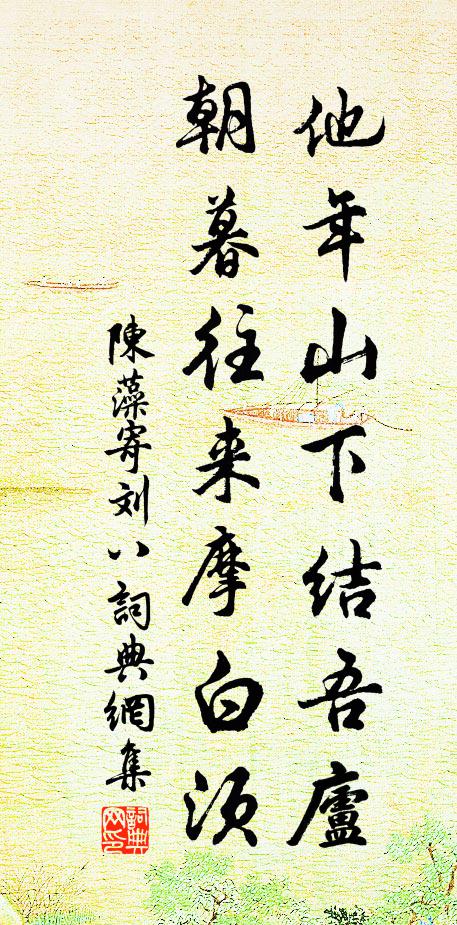 他年山下结吾廬
朝暮往来摩白须
陳藻寄刘八詞典網集
詞典网印